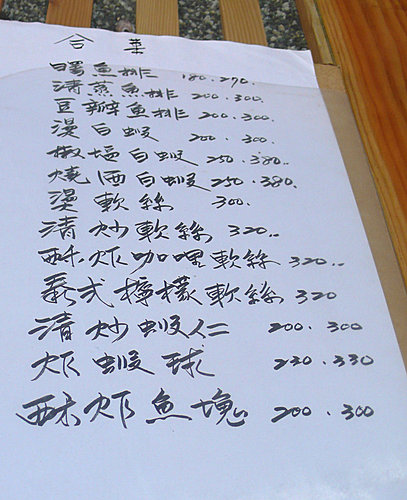 合菜
曙魚排 180.270.
清蒸魚排 200.300.
豆瓣魚排 200.300.
燙白蝦 200.300.
椒塩白蝦 250.380..
燒酒白蝦 250.380.
燙軟絲 300.
清炒軟絲 320..
酥炸加哩軟絲 320..
泰式檸檬軟絲 320
清炒蝦仁 200.300
炸蝦球 230.330
酥炸魚塊 200.300